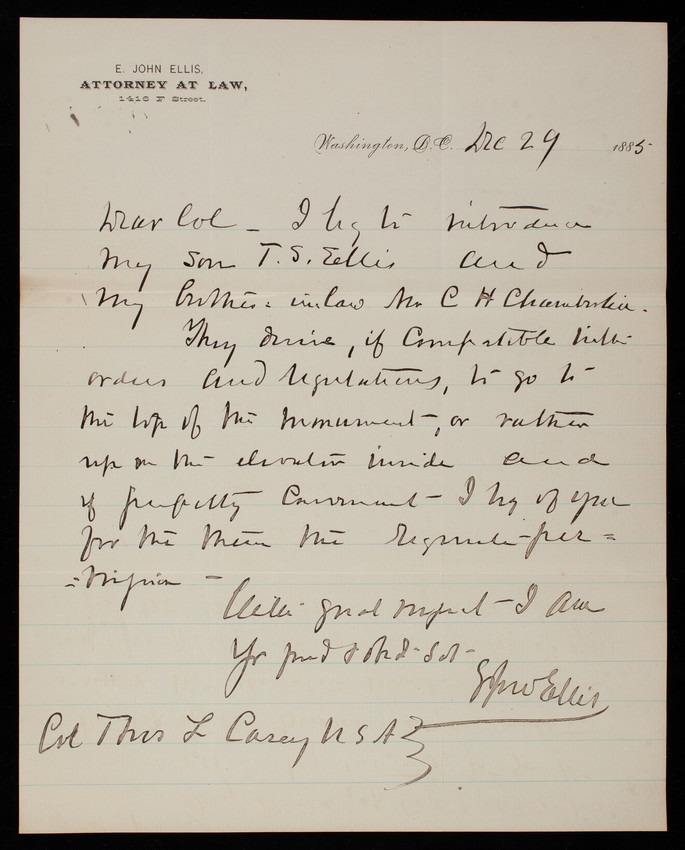 E. JOHN ELLIS,
ATTORNEY AT LAW,
1416 F Street.
Washington, D.C. Dec 29 1885
Dear Col — I beg to introduce
my son T. S. Ellis and
my brother-in-law Mr C H Chamberlin.
They desire, if compatible with
orders and regulations, to go to
the top of the monument, or rather
up on the elevator inside and
if perfectly convenient — I beg of you
for the them the requisite per=
=mission —
With great respect — I am
Yr friend & obd. Svt.
E Jno Ellis
Col Thos L Casey U S A